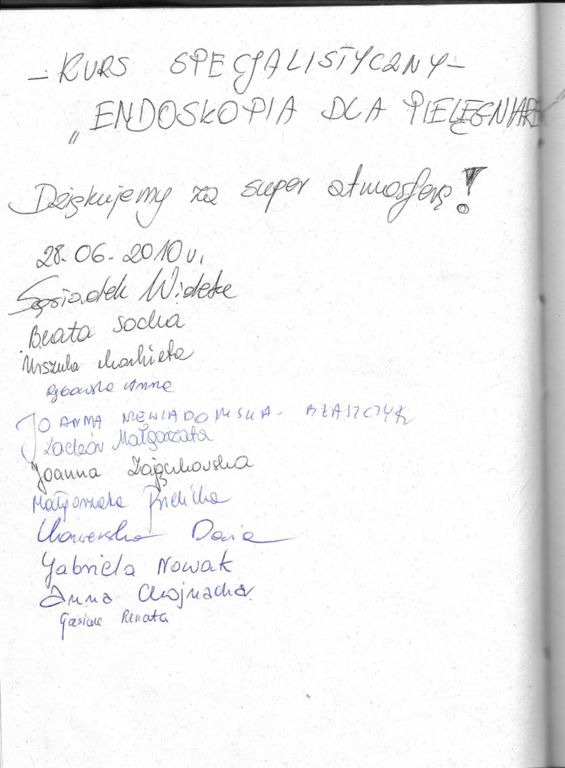 - KURS SPECJALISTYCZNY -
„ENDOSKOPIA DLA PIELĘGNIAR
Dziękujemy za super atmosferę!
28.06.2010 r.
Sąsiadek Wioleta
Beata Socha
Urszula
Anna
JOANNA NIEWIADOMSKA - BŁASZCZYK
Małgorzata
Joanna Zajączkowska
Małgorzata
Daria
Gabriela Nowak
Anna Chojnacka
Renata